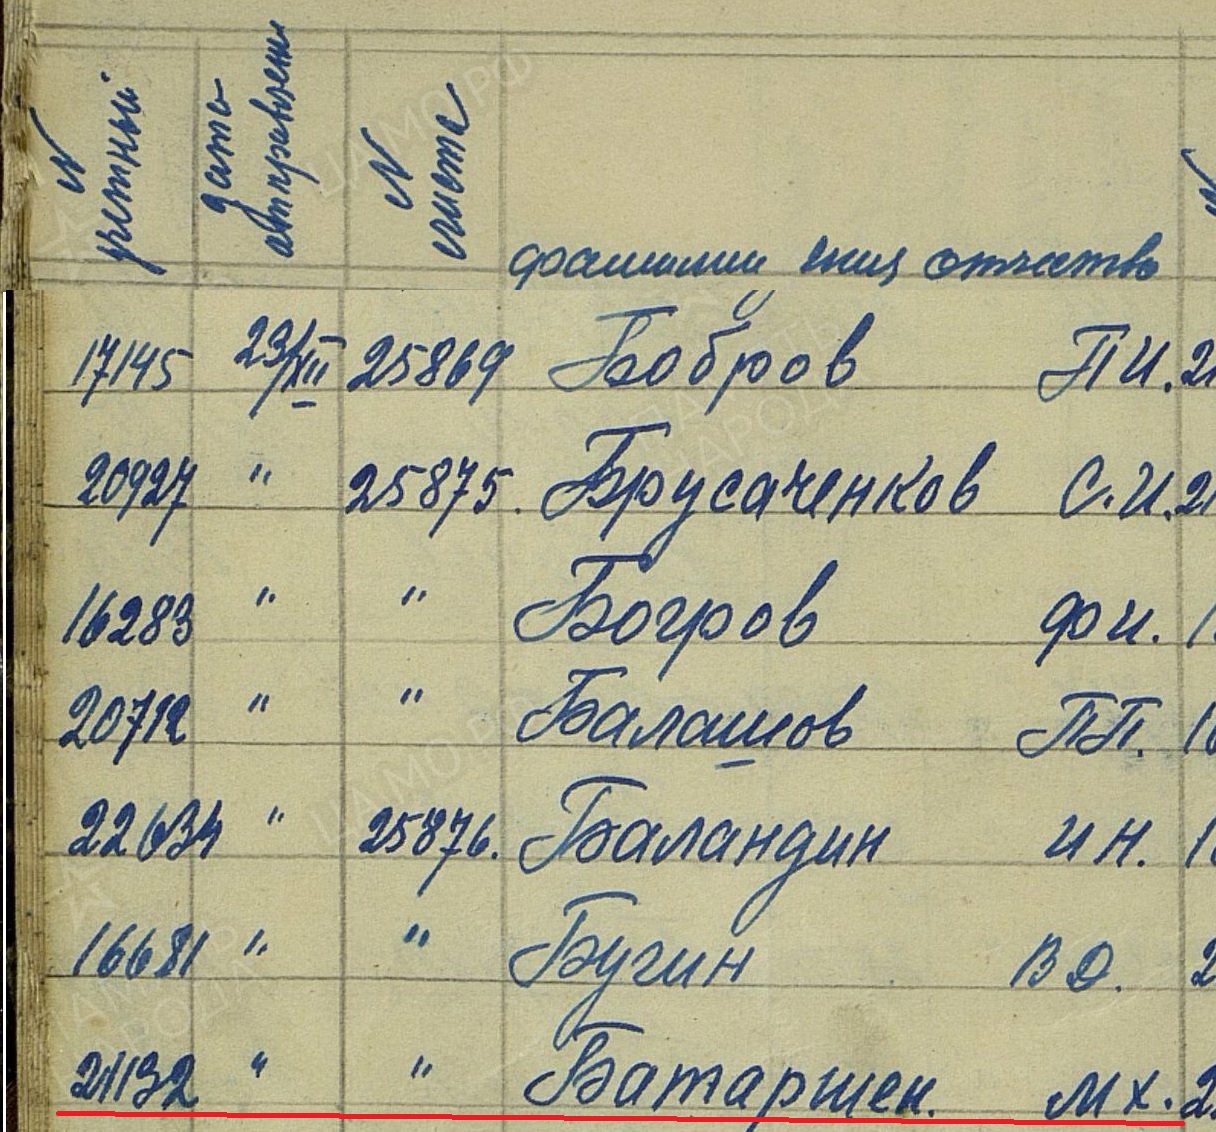 N учетный дата отправлен N листа фамилии имя отчество
17145 23/XII 25869 Бобров П И. 2
20927 " 25875. Брусаченков С. И. 2
16283 " " Богров Ф И. 1
20712 " " Балашов П П. 16
22634 " 25876. Баландин И Н. 1
16681 " " Бугин В Д. 2
21132 " " Батаршен. М Х. 2
ЦАМО.РФ
ПАМЯТЬ НАРОДА
ЦАМО.РФ
ПАМЯТЬ НАРОДА